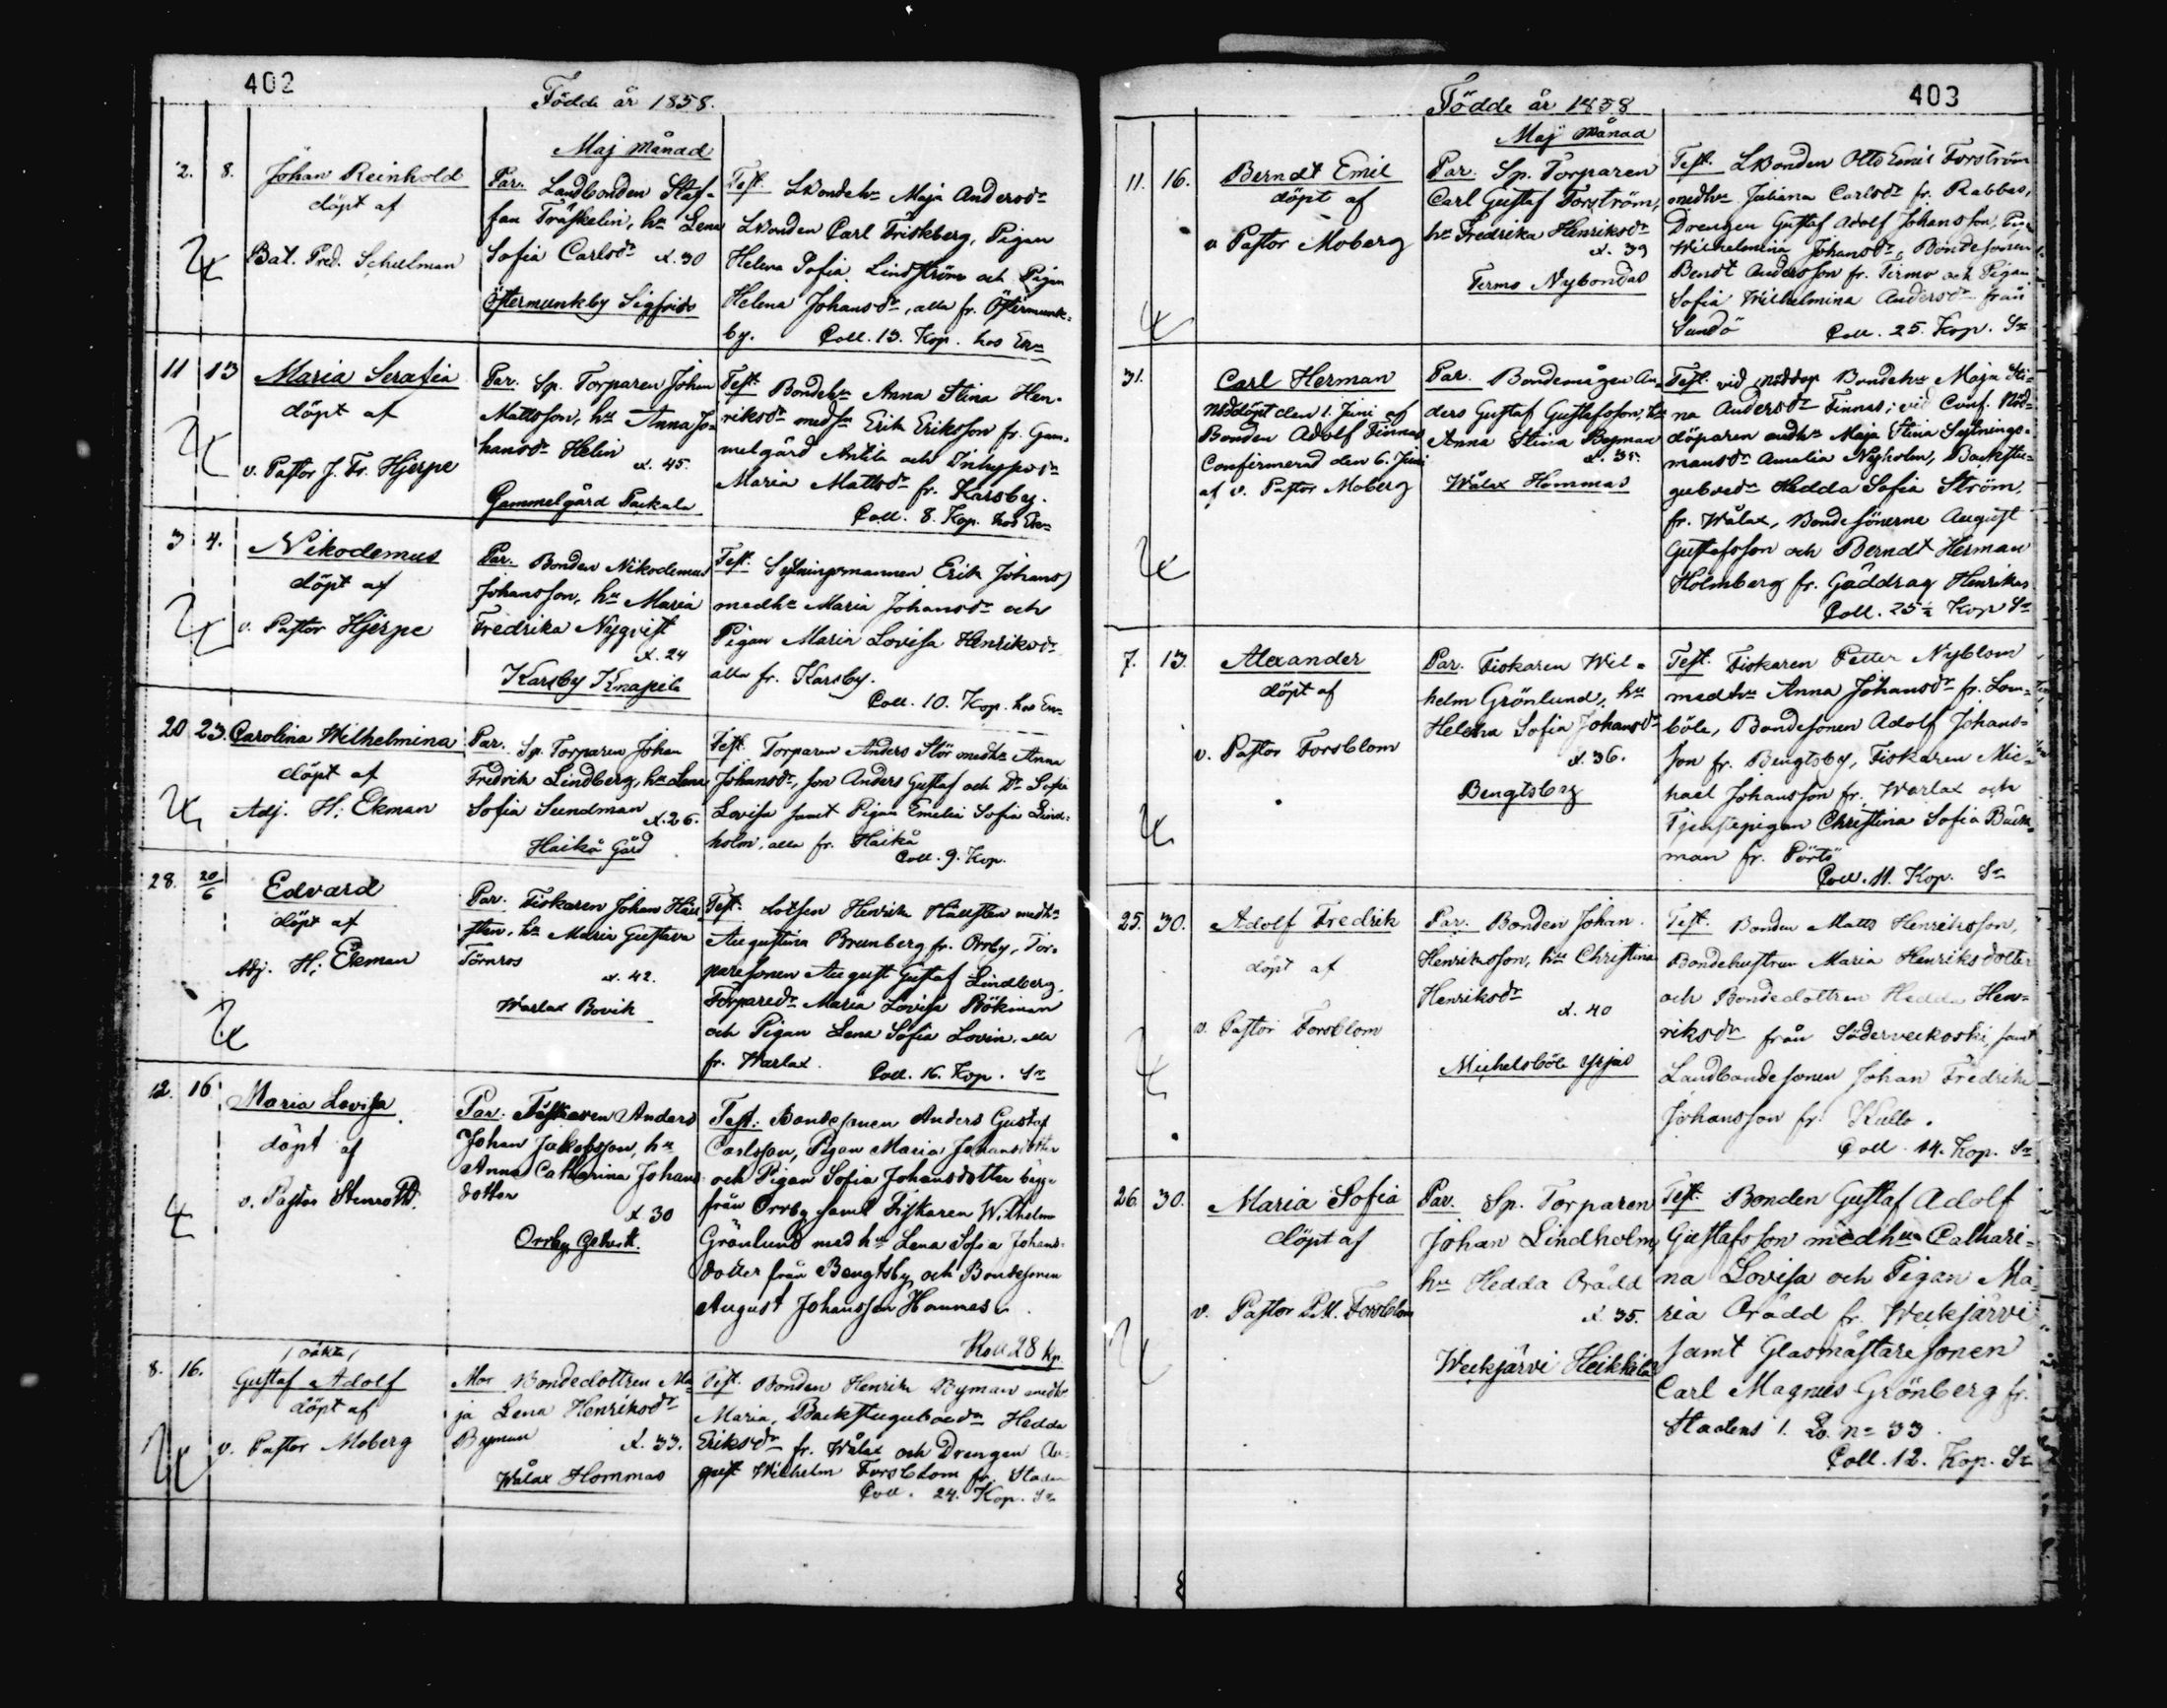 402
Födde år 1858.
Maj månad
2. 8. Johan Reinhold
döpt af
Bat. Pred. Schulman
Par. Landbonden Staf-
fan Träskelin, hu Lena
Sofia Carlsdr x. 30
Östermunkby Sigfrids
Test. LBondehu Maja Andersdr
LBonden Carl Friskberg, Pigan
Helena Sofia Lindström och Pigan
Helena Johansdr, alla fr. Östermunk-
by. Coll. 13. Kop. hos
11 13 Maria Serafia
döpt af
v. Pastor J. Fr. Hjerpe
Par. Sp. Torparen Johan
Mattsson, hu Anna Jo-
hansdr Helin
x. 45.
Gammelgård Packala
Test. Bondehu Anna Stina Hen-
riksdr med Erik Eriksson fr. Gam-
melgård Antila och
Maria Mattsdr fr. Karsby.
Coll. 8. Kop. hos
3 4. Nikodemus
döpt af
v. Pastor Hjerpe
Par. Bonden Nikodemus
Johansson, hu Maria
Fredrika Nyqvist
x. 24
Karsby Knapila
Test. Sytningsmannen Erik Johans)
medhu Maria Johansdr och
Pigan Maria Lovisa Henriksdr
alla fr. Karsby.
Coll. 10. Kop. hos
20 23 Carolina Wilhelmina
döpt af
Adj. H. Ekman
Par. Sp. Torparen Johan
Fredrik Lindberg, hu Lena
Sofia Sundman x. 26.
Haikå Gård
Test. Torparen Anders Stör medhu Anna
Johansdr, son Anders Gustaf och Dr Sofia
Lovisa samt Pigan Emelia Sofia Lind-
holm, alla fr. Haikå
Coll. 9. Kop.
28. 20/6 Edvard
döpt af
Adj. H. Ekman
Par. Fiskaren Johan Häll
sten, hu Maria Gustava
Törnros
x. 42.
Warlax Bovik
Test. Lotsen Henrik Hällsten medhu
Augustina Brunberg fr. Orrby, Tor-
paresonen August Gustaf Lindberg,
Torparedr Maria Lovisa Bökman
och Pigan Lena Sofia Lovin, alla
fr. Warlax. Coll. 16. Kop. Sr
12. 16 Maria Lovisa
döpt af
v. Pastor Stenroth.
Par. Fiskaren Anders
Johan Jakobsson, hu
Anna Catharina Johans
dotter
x 30
Orrby
Test: Bondesonen Anders Gustaf
Carlsson, Pigan Maria Johansdotter
och Pigan Sofia Johansdotter begge
från Orrby samt Fiskaren Wilhelm
Grönlund med hu Lena Sofia Johans-
dotter från Bengtsby och Bondesonen
August Johansson Hommes.
Koll 28 kp
8. 16. /oäkta/
Gustaf Adolf
döpt af
v. Pastor Moberg
Mor Bondedottren Ma-
ja Lena Henriksdr
Byman x. 33.
Wålax Hommas
Test. Bonden Henrik Byman medhu
Maria, Backstugubodr Hedda
Eriksdr fr. Wålax och Drengen Au-
gust Wilhelm Forsblom fr. Staden
Coll. 24. Kop. Sr
403
Födde år 1858
Maj månad
11. 16. Berndt Emil
döpt af
v Pastor Moberg
Par. Sp. Torparen
Carl Gustaf Forström,
hu Fredrika Henriksdr
x. 39
Termo Nybondas
Test. LBonden Otto Emil Forström
medhu Juliana Carlsdr fr. Rabbas,
Drengen Gustaf Adolf Johansson,
Wilhelmina Johansdr, Bondesonen
Bendt Andersson fr. Tirmo och Pigan
Sofia Wilhelmina Andersdr från
Sundö Coll. 25. Kop. Sr
31. Carl Herman
Nöddöpt den 1. Juni af
Bonden Adolf Finnas
Confirmerad den 6. Juni
af v. Pastor Moberg
Par. Bondemågen An-
ders Gustaf Gustafsson, hu
Anna Stina Byman
x. 35.
Wålax Hommas
Test. vid nöddop Bondehu Maja Sti-
na Andersdr Finnas; vid Conf. Nöd-
döparen medhu Maja Stina Sytnings-
mansdr Amalia Nyholm, Backstu-
gubodr Hedda Sofia Ström,
fr. Wålax, Bondesönerne August
Gustafsson och Berndt Herman
Holmberg fr. Gäddrag Henrikas
Coll. 25½ Kop Sr
7. 13. Alexander
döpt af
v. Pastor Forsblom
Par. Fiskaren Wil-
helm Grönlund, hu
Helena Sofia Johansdr
x. 36.
Bengtsby
Test. Fiskaren Petter Nyblom
medhu Anna Johansdr fr. Lom-
böle, Bondesonen Adolf Johans-
son fr. Bengtsby, Fiskaren Mic-
hael Johansson fr. Warlax och
Tjenstepigan Christina Sofia Bäck-
man fr. Pörtö
Coll. 11. Kop. Sr
25. 30. Adolf Fredrik
döpt af
v. Pastor Forsblom
Par. Bonden Johan
Henriksson, hu Christina
Henriksdr
x. 40
Michelsböle Yrjas
Test. Bonden Matts Henriksson,
Bondehustrun Maria Henriksdotter
och Bondedottren Hedda Hen-
riksdr från Söderveckoski, samt
Landbondesonen Johan Fredrik
Johansson fr. Kullo.
Coll. 14. Kop. Sr
26. 30. Maria Sofia
döpt af
v. Pastor P.M. Forsblom
Par. Sp. Torparen
Johan Lindholm,
hu Hedda Orädd
x. 35.
Weckjärvi Heikkilas
Test. Bonden Gustaf Adolf
Gustafsson medhu Cathari-
na Lovisa och Pigan Ma-
ria Orädd fr. Weckjärvi
samt Glasmästaresonen
Carl Magnus Grönberg fr.
Stadens 1. Qv. No 33.
Coll. 12. Kop. Sr